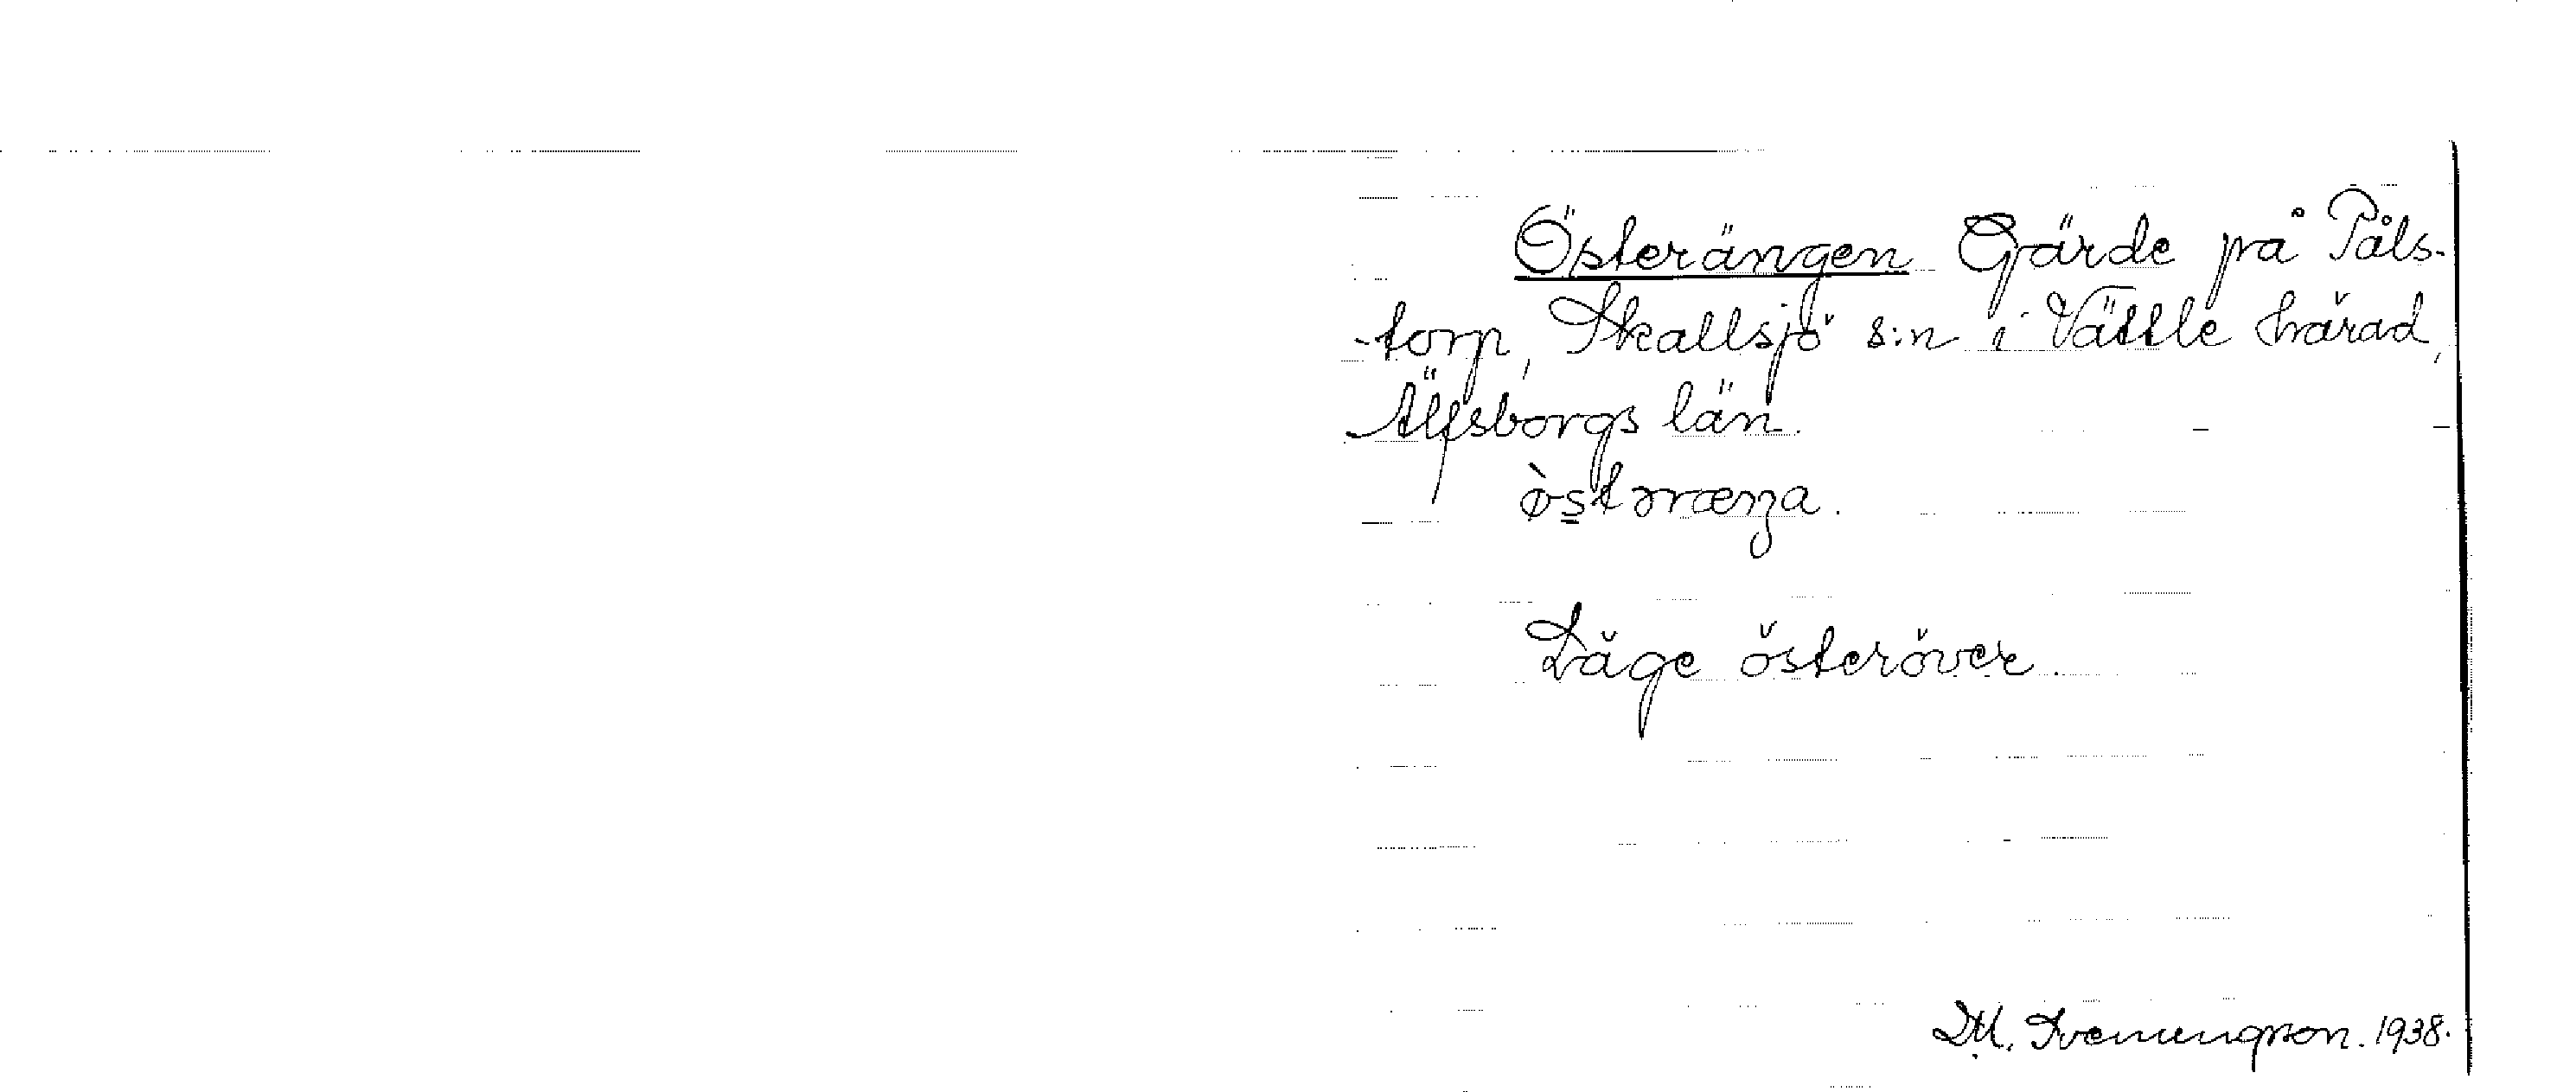 Österängen Gärde på Påls-
-torp, Skallsjö s:n i Vättle härad,
Älfsborgs län.
ò̵stərænga.
Läge österöver.
D.M. Svenungsson. 1938.